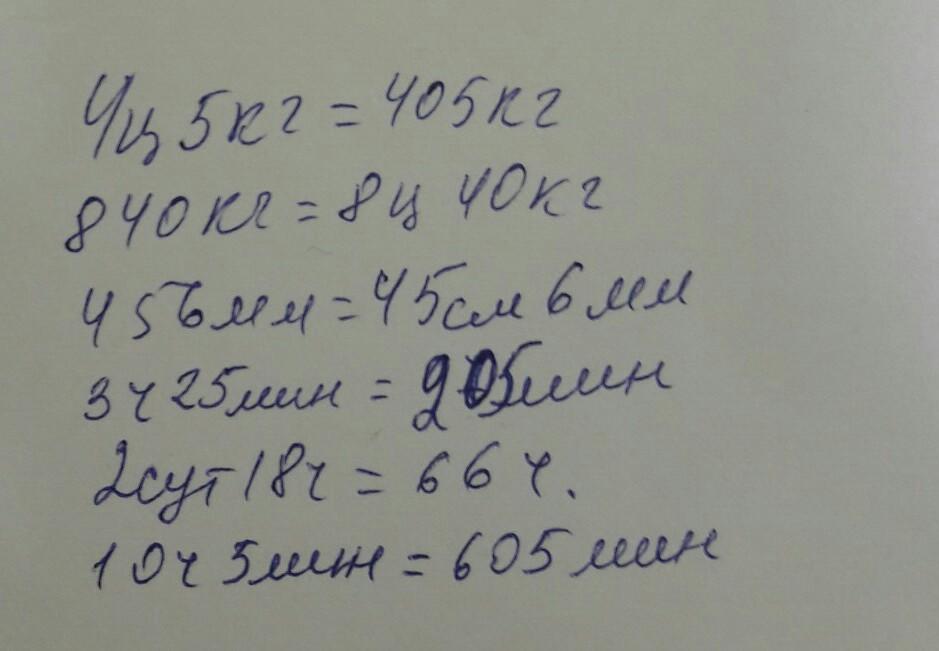 4ц 5кг = 405кг
840кг = 8ц 40кг
456мм = 45см 6мм
3ч 25мин = 205мин
2сут 18ч = 66ч.
10ч 5мин = 605мин